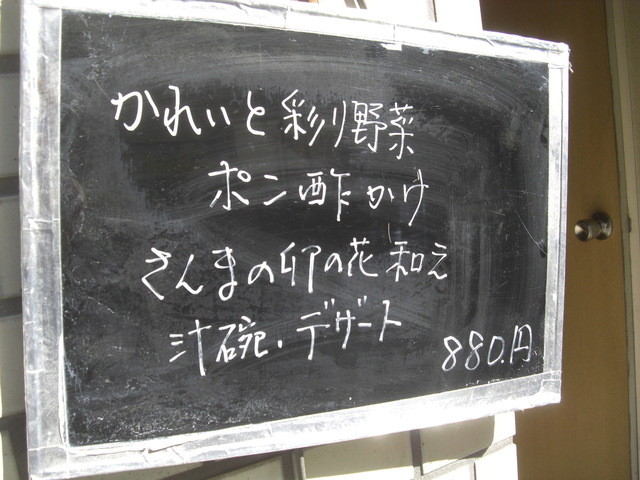 かれいと彩り野菜
ポン酢かけ
さんまの卯の花和え
汁碗・デザート
880.円